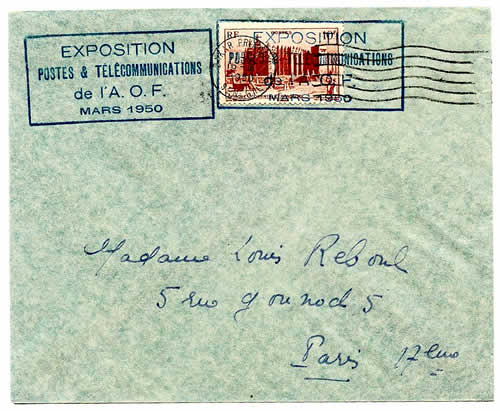 EXPOSITION
POSTES & TÉLÉCOMMUNICATIONS
de l'A. O. F.
MARS 1950
EXPOSITION
MARS 1950
RF
Madame Louis Reboul
5 rue Gounod 5
Paris 17eme